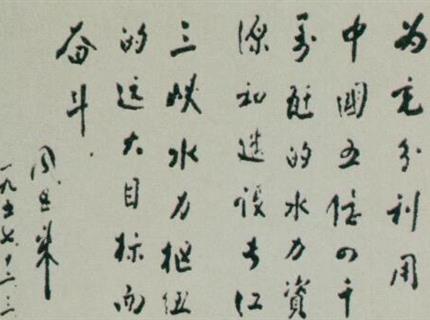 为充分利用
中國五億四千
万瓩的水力資
源和建设长江
三峡水力枢纽
的远大目标而
奋斗.
周恩来
一九五七.十二.三